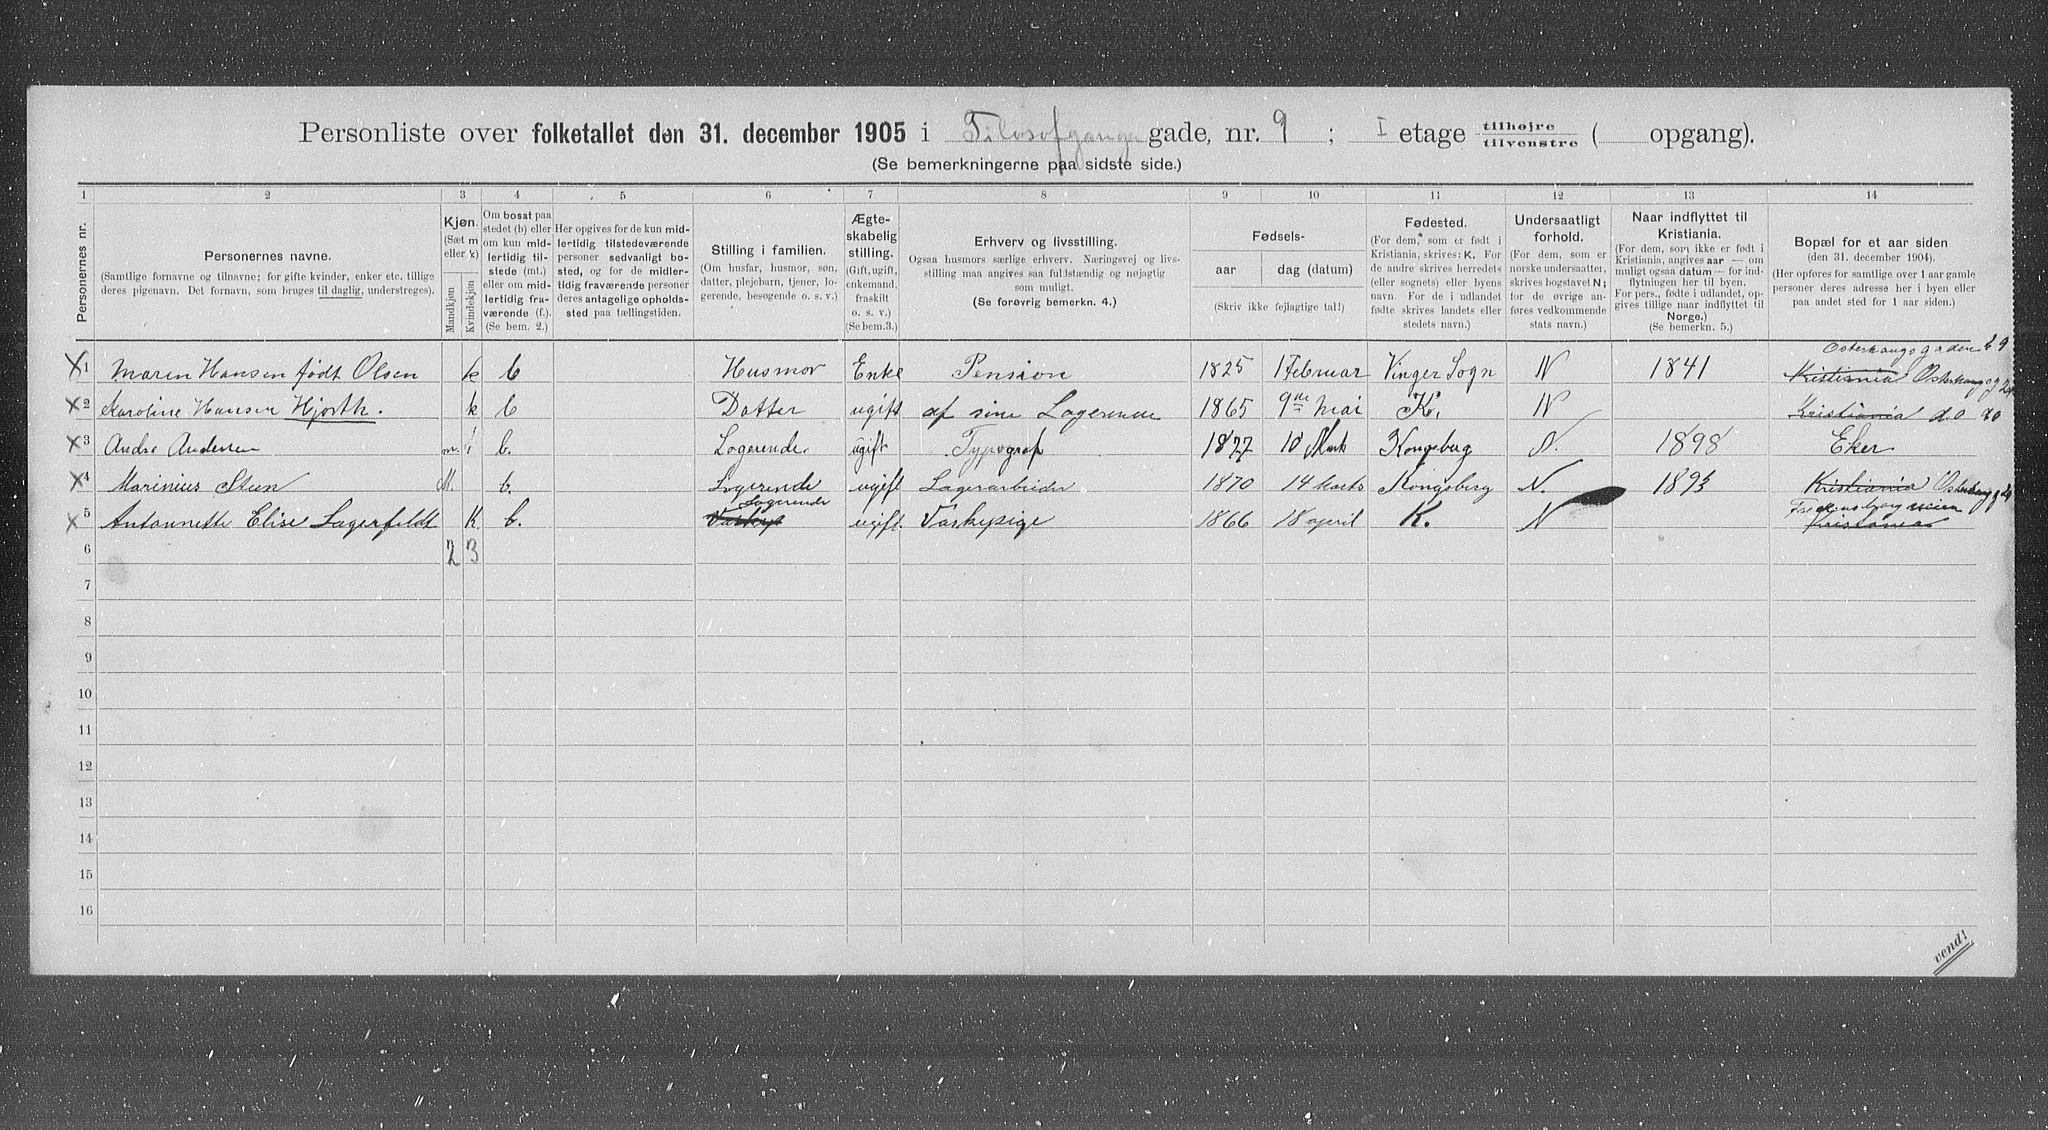 Personliste over folketallet den 31. december 1905 i Filosofganga gade, nr. 9 ; I etage tilhøjre tilvenstre ( opgang).
(Se bemerkningerne paa sidste side.)
1 2 3 4 5 6 7 8 9 10 11 12 13 14
Personernes nr.
Personernes navne.
(Samtlige fornavne og tilnavne; for gifte kvinder, enker etc. tillige deres pigenavn. Det fornavn, som bruges til daglig, understreges).
Kjøn.
(Sæt m eller k)
Mandkjøn
Kvindekjøn
Om bosat paa stedet (b) eller om kun midlertidig tilstede (mt.) eller om midlertidig fraværende (f.). (Se bem. 2.)
Her opgives for de kun midlertidig tilstedeværende personer sedvanligt bosted, og for de midlertidig fraværende personer deres antagelige opholdssted paa tællingstiden.
Stilling i familien.
(Om husfar, husmor, søn, datter, plejebarn, tjener, logerende, besøgende o. s. v.)
Ægteskabelig stilling.
(Gift, ugift, enkemand, fraskilt o. s. v.)
(Se bem.3.)
Erhverv og livsstilling.
Ogsaa husmors særlige erhverv. Næringsvej og livsstilling maa angives saa fuldstændig og nøjagtig som muligt.
(Se forøvrig bemerkn. 4.)
Fødsels-
aar
dag (datum)
(Skriv ikke fejlagtige tal!)
Fødested.
(For dem, som er født i Kristiania, skrives: K. For de andre skrives herredets (eller sognets) eller byens navn. For de i udlandet fødte skrives landets eller stedets navn.)
Undersaatligt forhold.
(For dem, som er norske undersaatter, skrives bogstavet N; for de øvrige anføres vedkommende stats navn.)
Naar indflyttet til Kristiania.
(For dem, som ikke er født i Kristiania, angives aar — om muligt ogsaa datum — for indflytningen her til byen. For pers., fødte i udlandet, opgives tillige naar indflyttet til Norge.)
(Se bemerkn. 5.)
Bopæl for et aar siden
(den 31. december 1904).
(Her opføres for samtlige over 1 aar gamle personer deres adresse her i byen eller paa andet sted for 1 aar siden.)
1 Maren Hansen født Olsen k b Husmor Enke Pension 1825 1 Februar Vinger Sogn N 1841 Kristiania
2 Karoline Hansen Hjorth. k b Datter ugift af sine Logerende 1865 9de Mai K. N Kristiania d.o
3 Andr. Andersen m. b. Logerende. ugift Typograf 1877 10 Kongsberg N. 1898 Eker
4 Marinius Steen M. b. Logerende ugift Lagerarbeider 1870 14 Marts Kongsberg N. 1893 Kristiania
5 Antonnette Elise Lagerfeldt K. b. Logerende ugift Vaskepige 1866 18 april K. N Kristiania
6 2 3
7
8
9
10
11
12
13
14
15
16
vend!